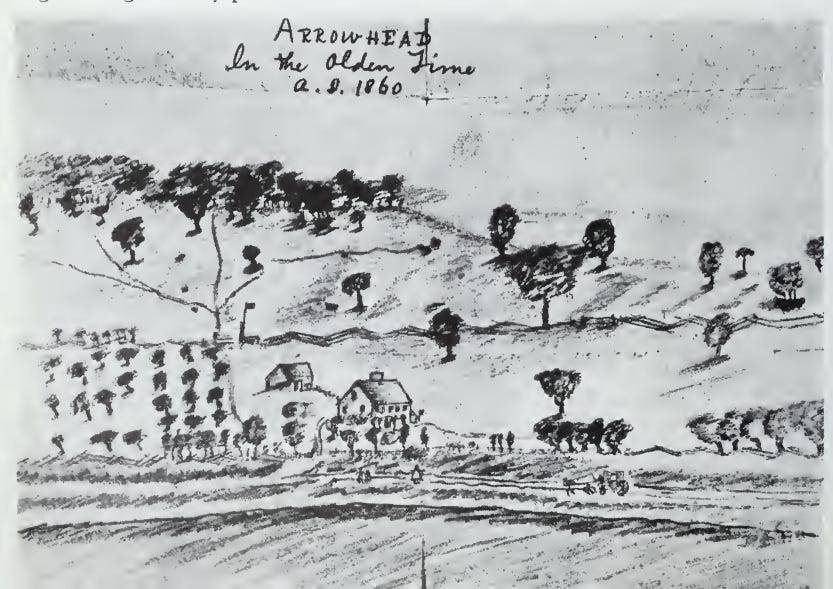 ARROWHEAD
In the Olden Time
A. D. 1860